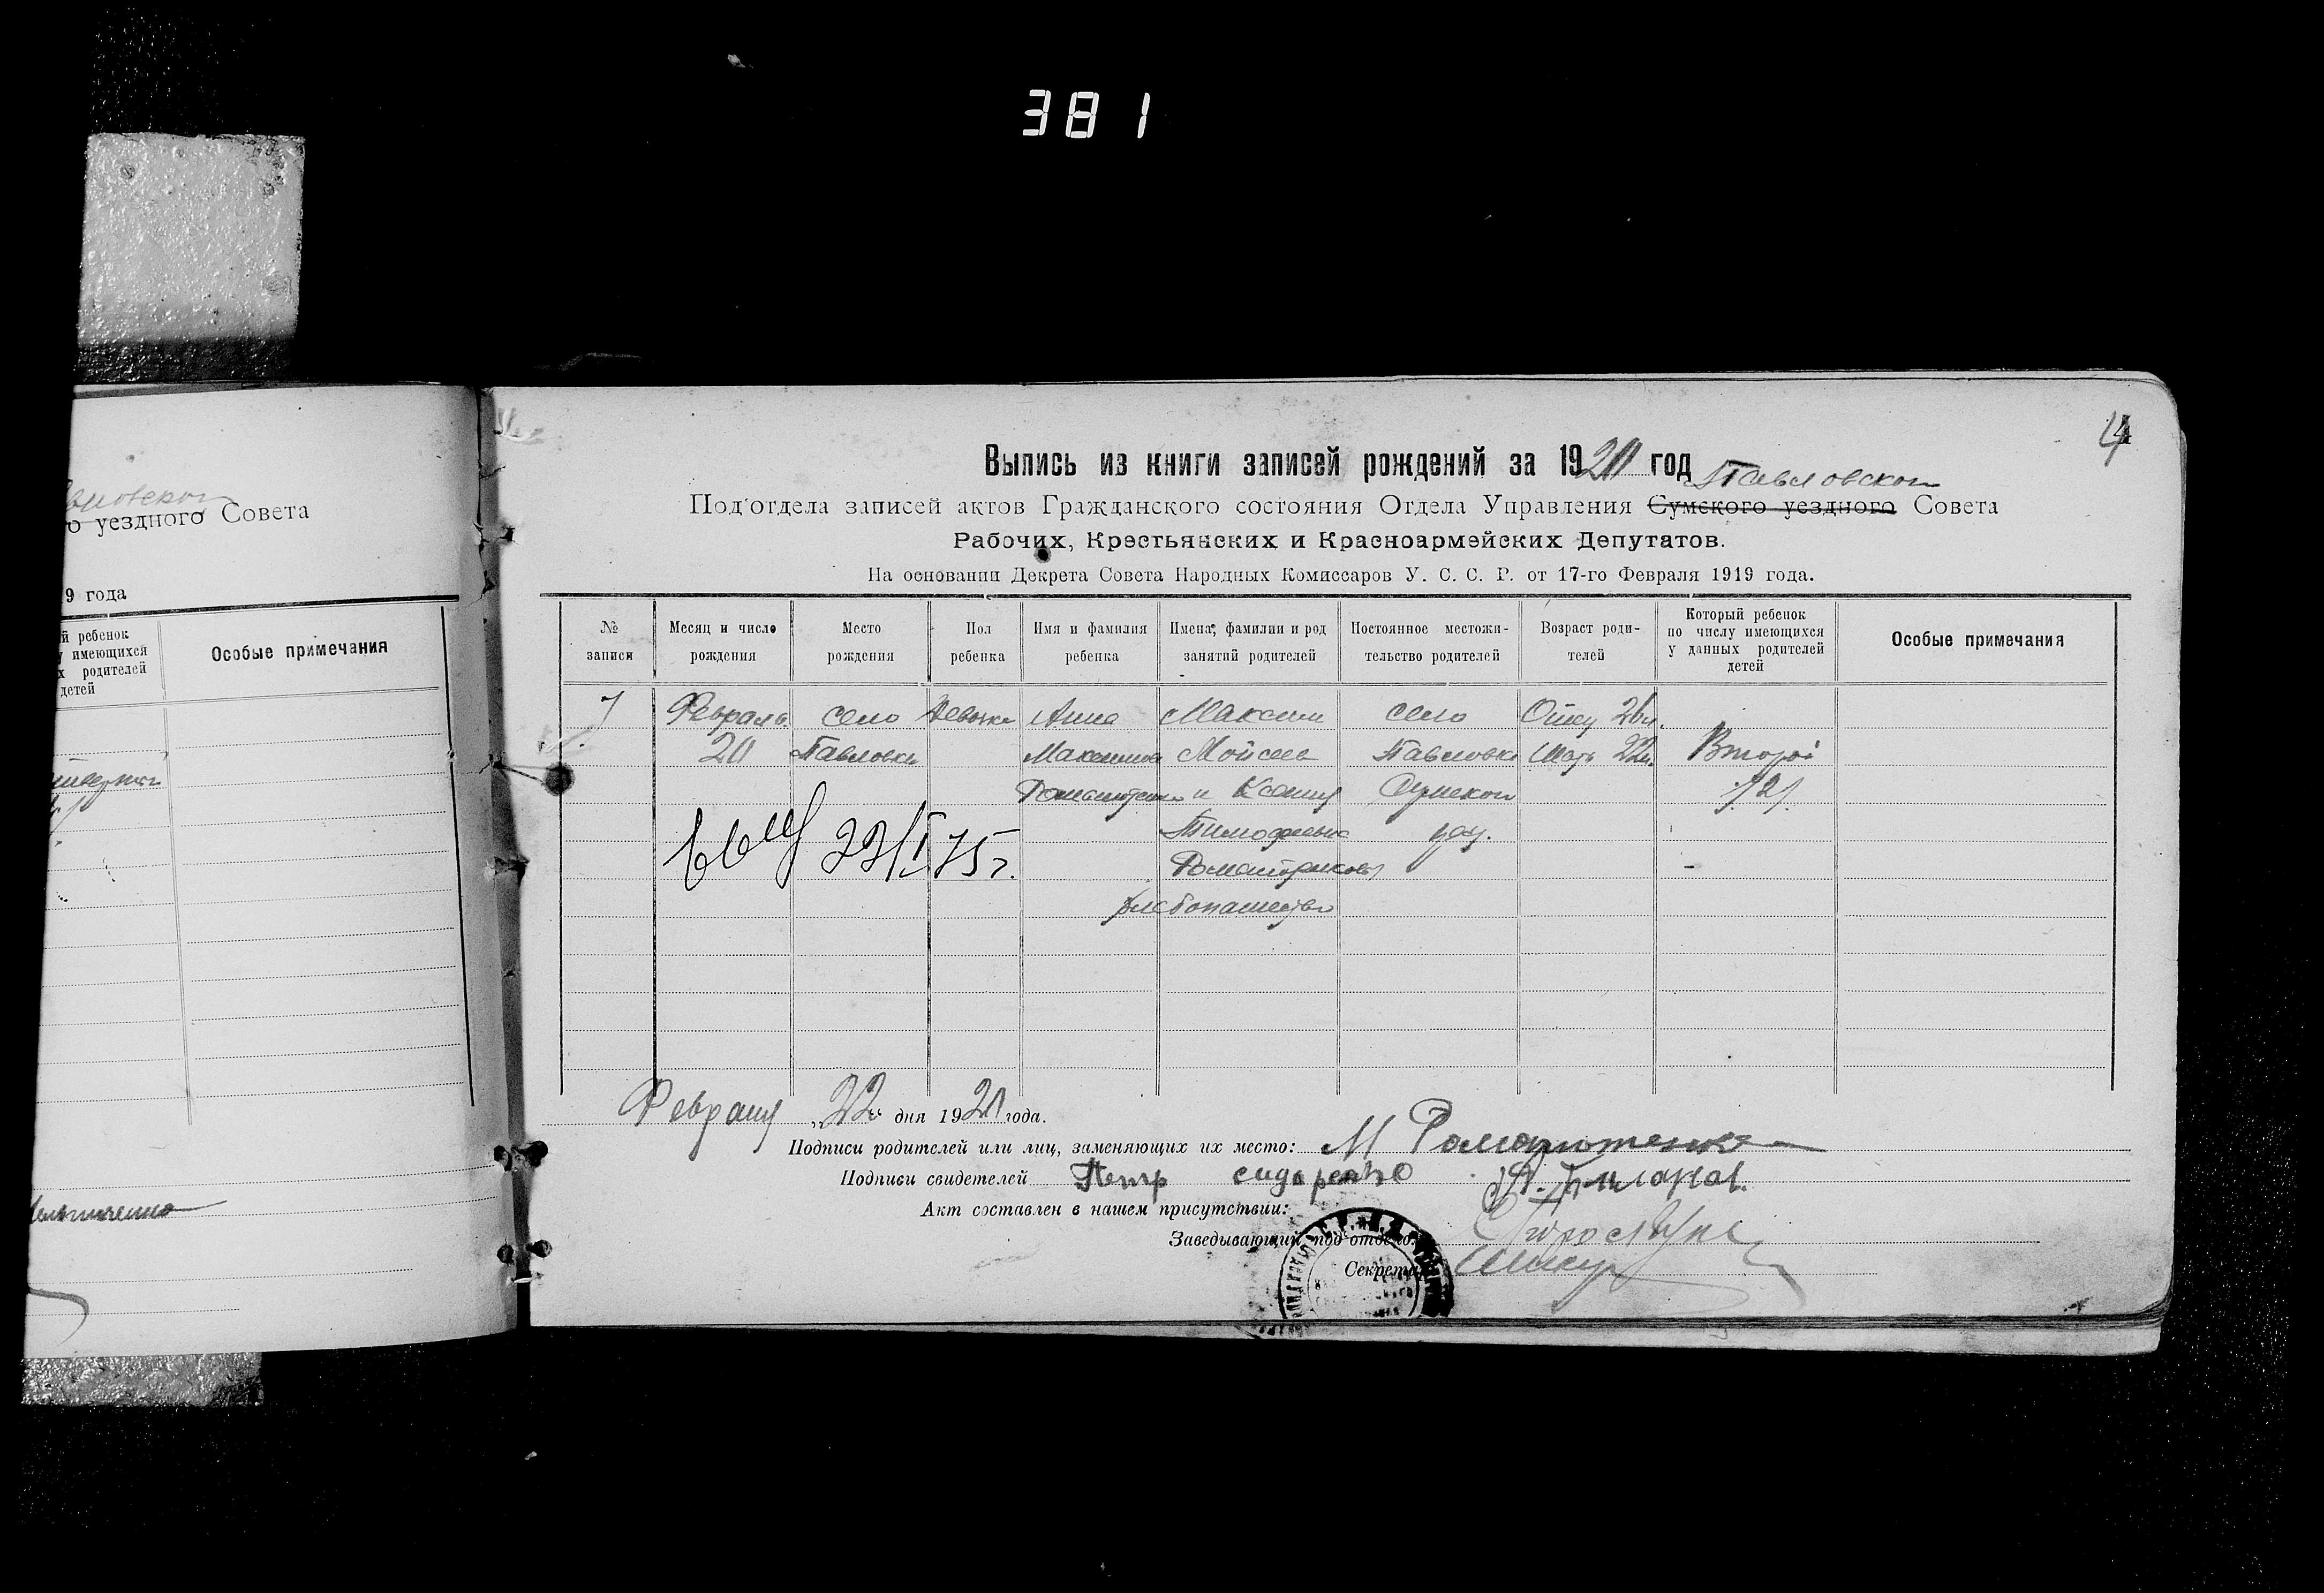 381
4
Выпись из книги записей рождений за 1920 год
Павловском
Под'отдела записей актов Гражданского состояния Отдела Управления Сумского уездного Совета
Рабочих, Крестьянских и Красноармейских Депутатов.
На основании Декрета Совета Народных Комиссаров У. С. С. Р. от 17-го Февраля 1919 года.
№ записи
Месяц и число рождения
Место рождения
Пол ребенка
Имя и фамилия ребенка
Имена, фамилии и род занятий родителей
Постоянное местожительство родителей
Возраст родителей
Который ребенок по числу имеющихся у данных родителей детей
Особые примечания
7 Февраль село Девочка Анна Максим село Отец 26л.
20 Павловка Максимова Мойсеев Павловка Мать 22л. Второй
и Ксения Сумского /2/
Тимофеевна уез.
22/I 75г.
хлебопашество
Февраля „22“ дня 1920 года.
Подписи родителей или лиц, заменяющих их место: М
Подписи свидетелей Петр Сидоренко
Акт составлен в нашем присутствии:
Заведывающий под'отдело
Секрета
о уездного Совета
9 года
й ребенок
у имеющихся
х родителей
детей
Особые примечания